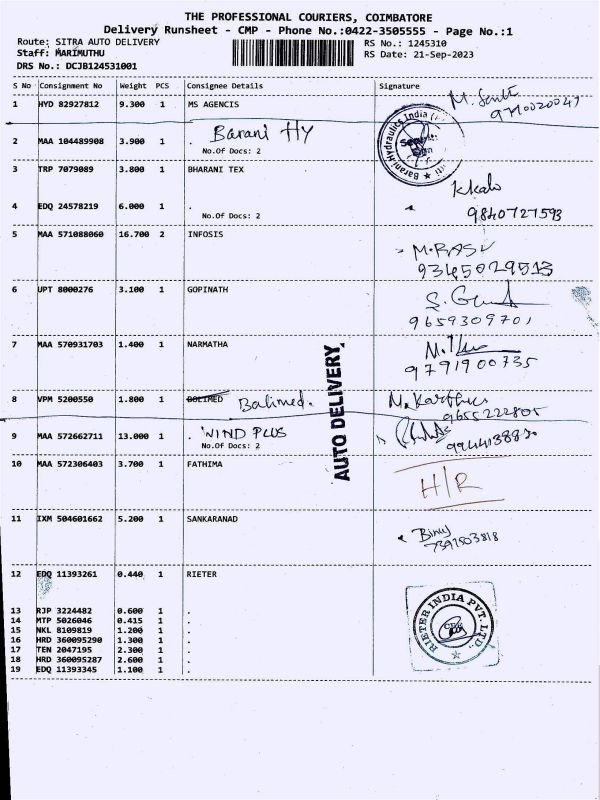 THE PROFESSIONAL COURIERS, COIMBATORE
Delivery Runsheet - CMP - Phone No.:0422-3505555 - Page No.:1
Route: SITRA AUTO DELIVERY
RS No.: 1245310
Staff: MARIMUTHU
RS Date: 21-Sep-2023
DRS No.: DCJB124531001
S No Consignment No Weight PCS Consignee Details Signature
1 HYD 82927812 9.300 1 MS AGENCIS
Barani HY
2 MAA 104489908 3.900 1 .
No.Of Docs: 2
Barani Hydraulics India
3 TRP 7079089 3.800 1 BHARANI TEX
4 EDQ 24578219 6.000 1 .
No.Of Docs: 2
9840727593
5 MAA 571088060 16.700 2 INFOSIS
9345029513
6 UPT 8000276 3.100 1 GOPINATH
9659309701
7 MAA 570931703 1.400 1 NARMATHA
9791900735
8 VPM 5200550 1.800 1 BOLIMED Balimed.
9655222805
9 MAA 572662711 13.000 1 . WIND PLUS
No.Of Docs: 2
10 MAA 572306403 3.700 1 FATHIMA
H/R
11 IXM 504601662 5.200 1 SANKARANAD
7391503818
AUTO DELIVERY
12 EDQ 11393261 0.440 1 RIETER
RIETER INDIA PVT. LTD.
13 RJP 3224482 0.600 1 .
14 MTP 5026046 0.415 1 .
15 NKL 8109819 1.200 1 .
16 HRD 360095290 1.300 1 .
17 TEN 2047195 2.300 1 .
18 HRD 360095287 2.600 1 .
19 EDQ 11393345 1.100 1 .